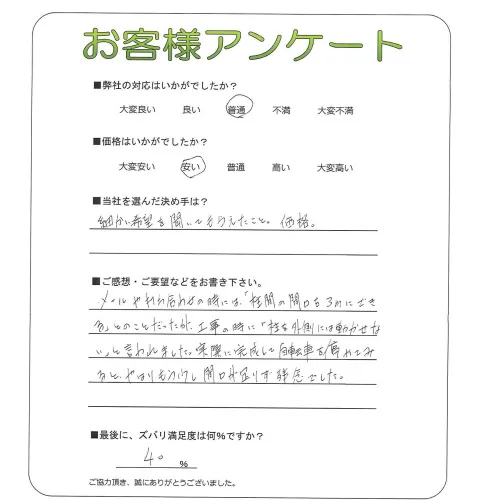 お客様アンケート
■弊社の対応はいかがでしたか?
大変良い 良い 普通 不満 大変不満
■価格はいかがでしたか?
大変安い 安い 普通 高い 大変高い
■当社を選んだ決め手は?
細かい希望を聞いてもらえたこと。価格。
■ご感想・ご要望などをお書き下さい。
メールや打ち合わせの時には、「柱間の間口を3mにでき
る」とのことだったが、工事の時に「柱を外側には動かせな
い」と言われました。実際に完成して自転車を停めてみ
ると、やはりもう少し間口が足りず残念でした。
■最後に、ズバリ満足度は何%ですか?
40 %
ご協力頂き、誠にありがとうございました。